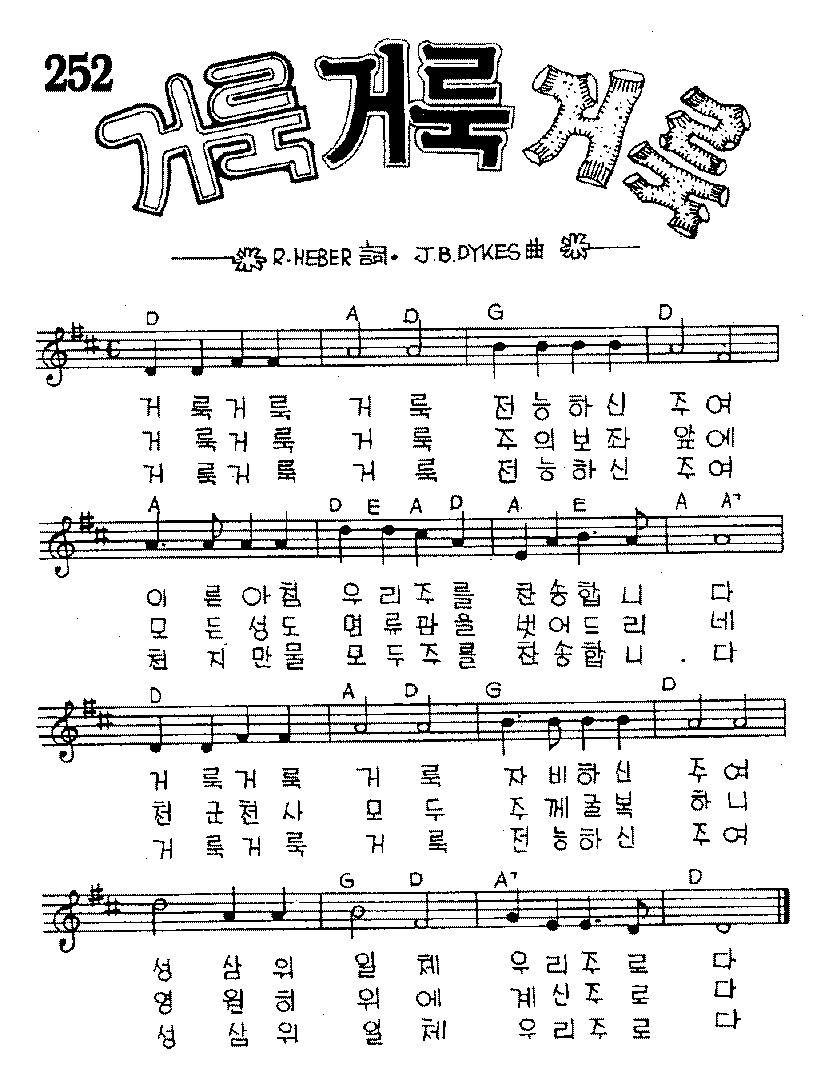 252
거룩 거룩 거룩
R.HEBER 詞. J.B.DYKES 曲
D A D G D
거 룩 거 룩 거 룩 전 능 하 신 주 여
거 룩 거 룩 거 룩 주 의 보 좌 앞 에
거 룩 거 룩 거 룩 전 능 하 신 주 여
A D E A D A E A A7
이 른 아 침 우 리 주 를 찬 송 합 니 다
모 든 성 도 면 류 관 을 벗 어 드 리 네
천 지 만 물 모 두 주 를 찬 송 합 니 . 다
D A D G D
거 룩 거 룩 거 룩 자 비 하 신 주 여
천 군 천 사 모 두 주 께 굴 복 하 니
거 룩 거 룩 거 룩 전 능 하 신 주 여
G D A7 D
성 삼 위 일 체 우 리 주 로 다
영 원 히 위 에 계 신 주 로 다
성 삼 위 일 체 우 리 주 로 다